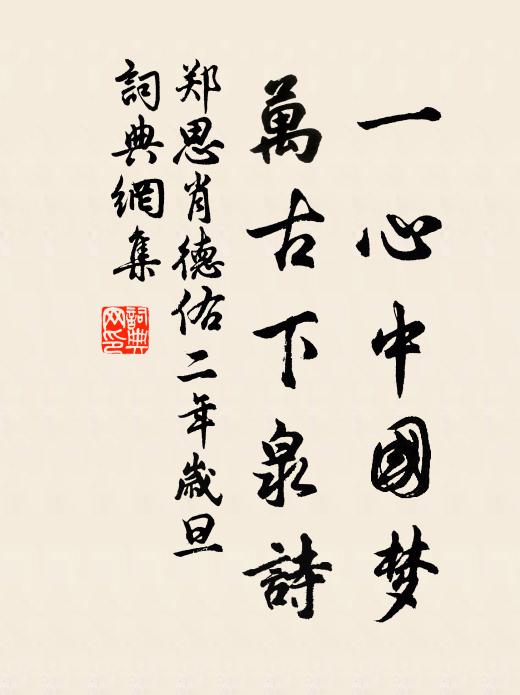 一心中國梦
萬古下泉詩
郑思肖德佑二年歲旦
詞典網集
詞典网印